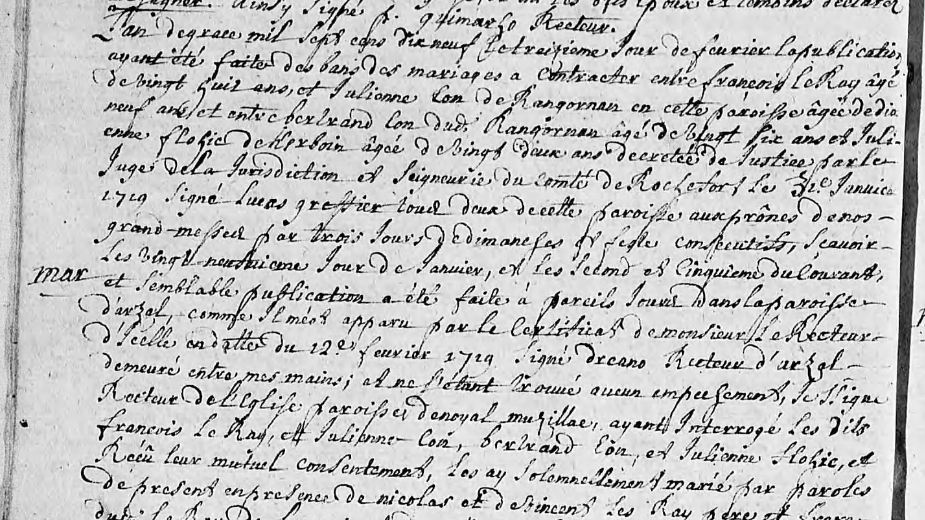 signé p. quimarho Recteur.
L'an de grace mil sept cens dix neuf Le treizieme Jour de fevrier la publication
ayant été faite des bans des mariages a Contracter entre francois le Ray âgé
de vingt huit ans, et Julienne Lon de Rangornan en cette paroisse âgée de dix
neuf ans, et entre bertrand Lon dud. Rangornan âgé de vingt six ans et Juli-
enne flohic de Kerboin âgée de vingt deux ans decretée de Justice par le
Juge de la Jurisdiction et Seigneurie du Comté de Rochefort le 31e Janvier
1719 Signé Lucas greffier tous deux de cette paroisse aux prônes de nos
grand-messes par trois Jours de dimanches et feste consecutifs, Scavoir
Les vingt neufvieme Jour de Janvier, et les Second et Cinquieme du Courant,
mar
et Semblable publication a été faite à pareils Jours dans la paroisse
d'arzal, comme Il m'est apparu par le Certificat de monsieur Le Recteur
d'Icelle en datte du 12e fevrier 1719 Signé dreano Recteur d'arzal
demeuré entre mes mains; et ne s'étant trouvé aucun empeschement, Je Signe
Recteur de l'Eglise paroissiel de noyal muzillac, ayant Interrogé Les dits
francois Le Ray, et Julienne Lon, bertrand Lon, et Julienne flohic, et
Reçû leur mutuel consentement, Les ay Solennellement marié par paroles
de present en presence de nicolas et de vincent Les Ray pere et